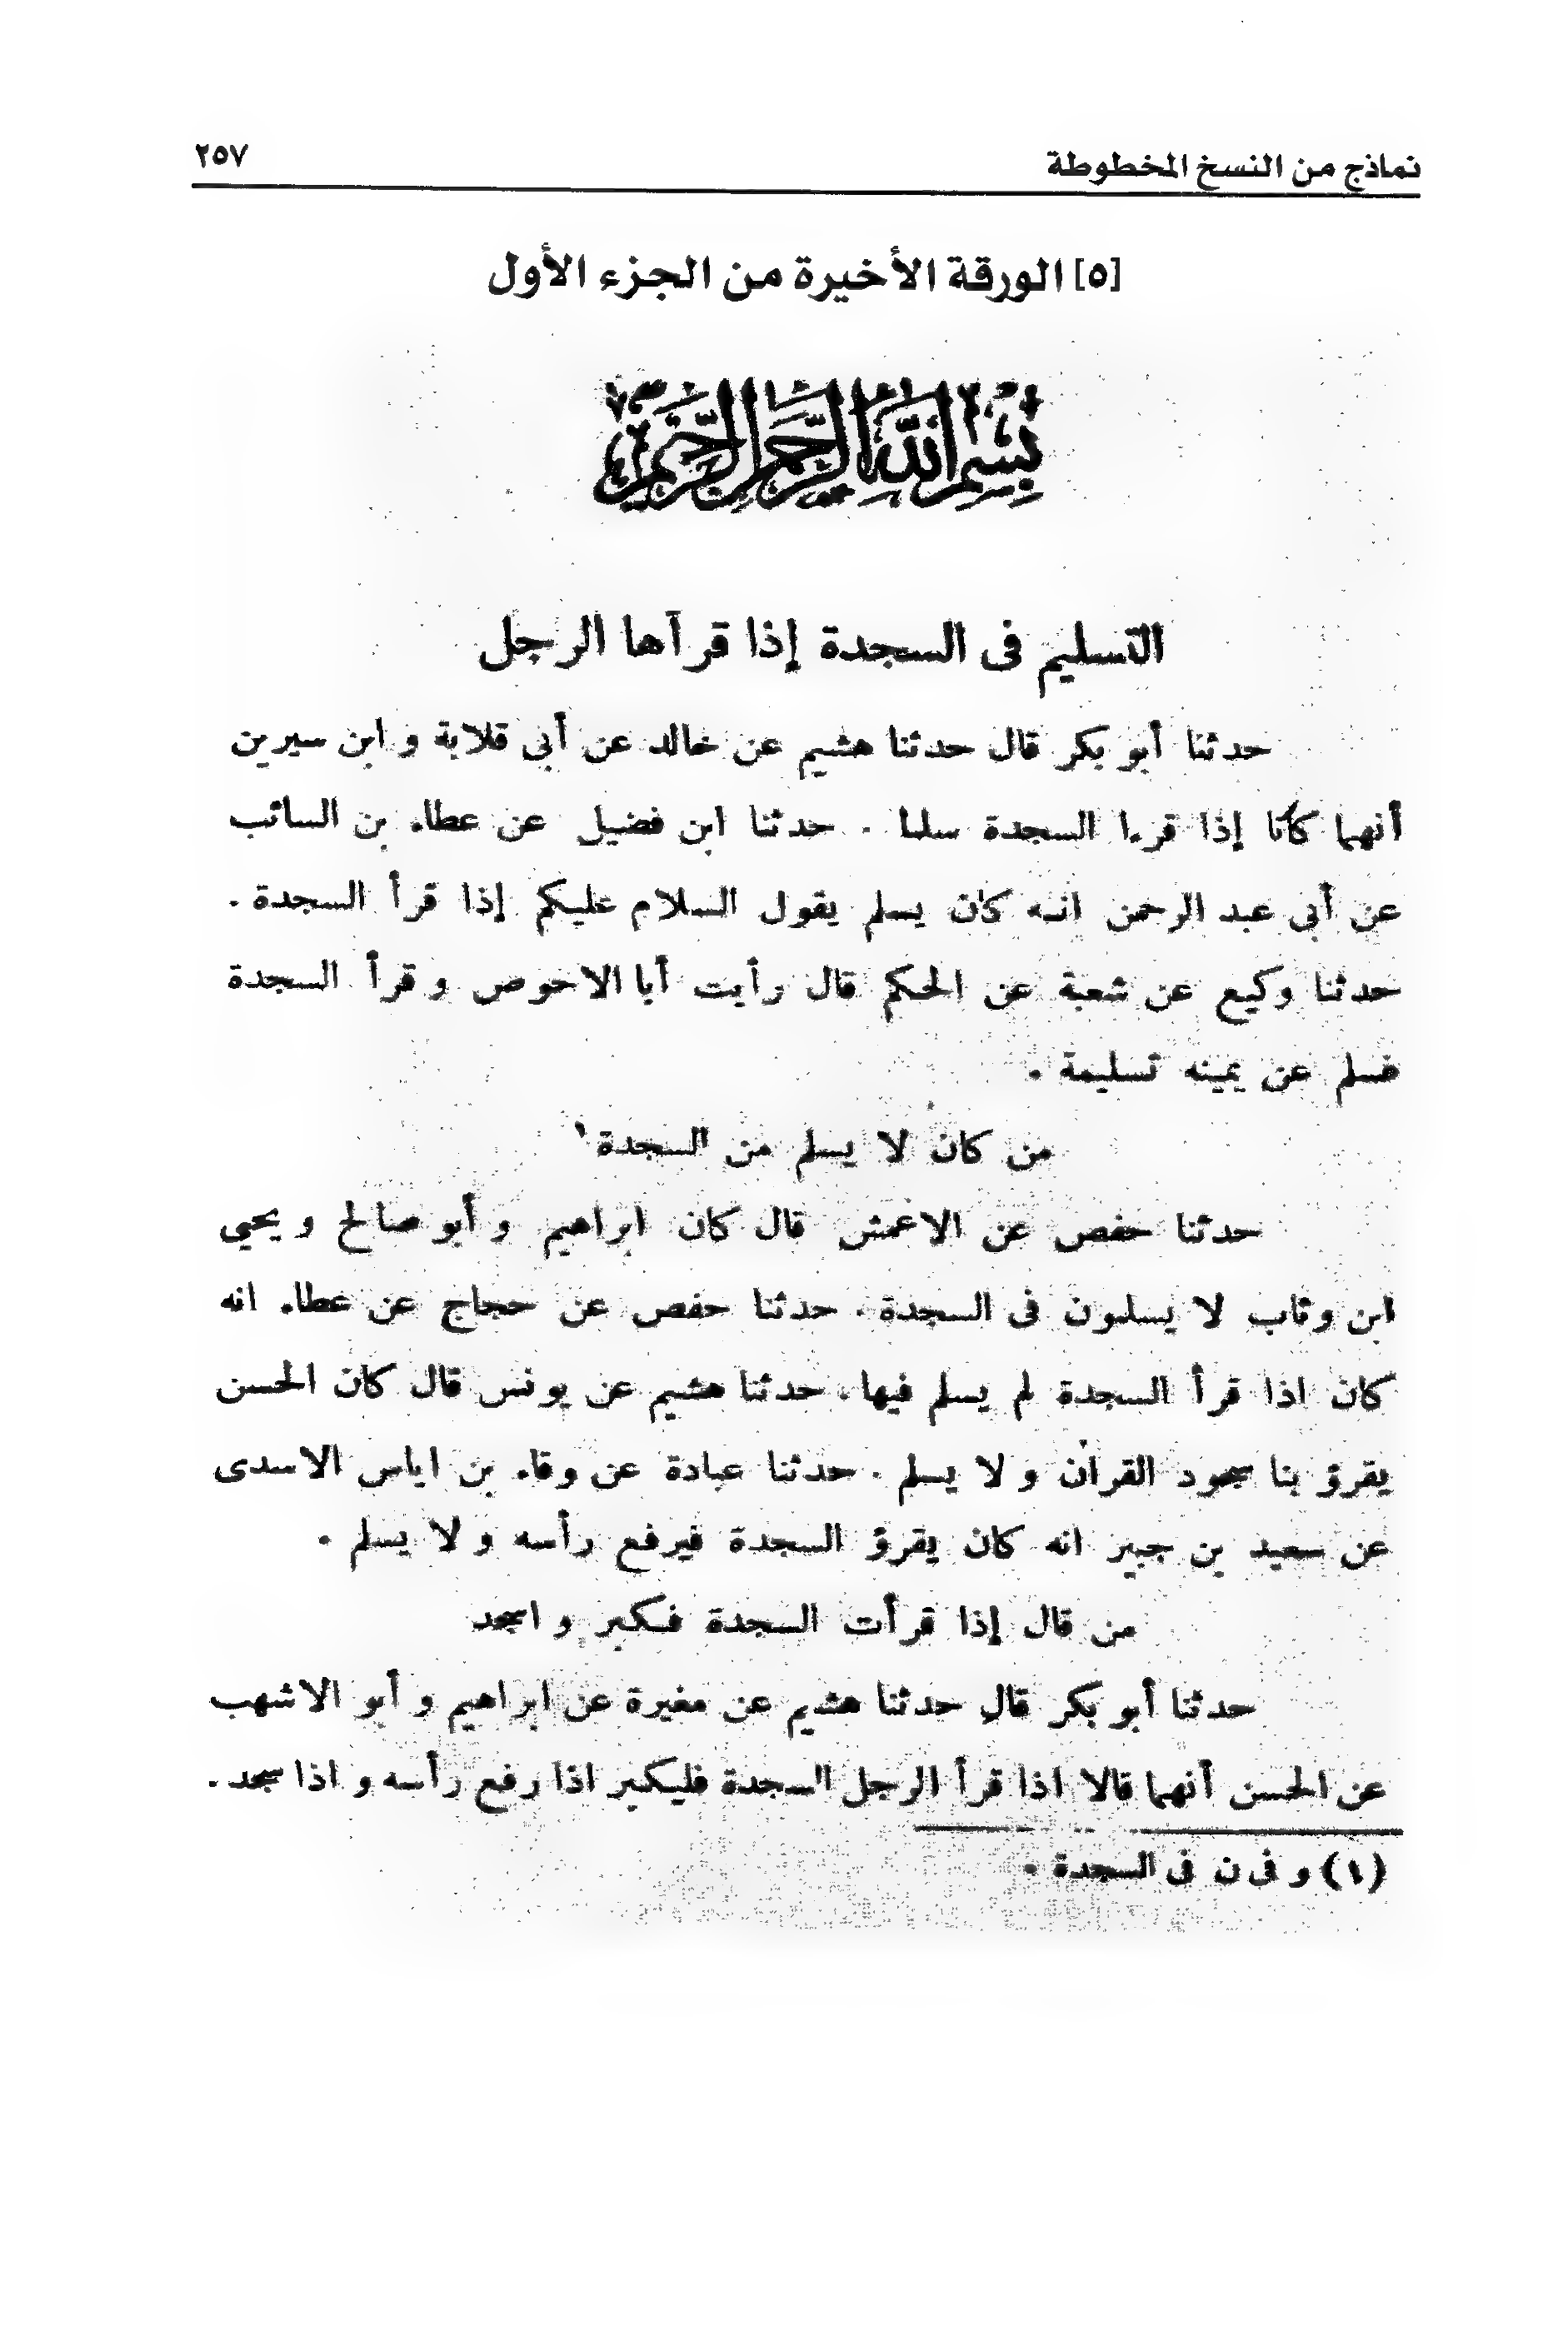 نماذج من النسخ المخطوطة ٢٥٧
[٥] الورقة الأخيرة من الجزء الأول
بسم الله الرحمن الرحيم
التسليم فى السجدة إذا قرآها الرجل
حدثنا أبو بكر قال حدثنا هشيم عن خالد عن أبى قلابة و ابن سيرين
أنهما كانا إذا قرءا السجدة سلما . حدثنا ابن فضيل عن عطاء بن السائب
عن أبى عبد الرحمن انه كان يسلم يقول السلام عليكم إذا قرأ السجدة .
حدثنا وكيع عن شعبة عن الحكم قال رأيت أبا الاحوص و قرأ السجدة
فسلم عن يمينه تسليمة .
من كان لا يسلم من السجدة ١
حدثنا حفص عن الاعمش قال كان ابراهيم و أبو صالح و يحيي
ابن وثاب لا يسلمون فى السجدة . حدثنا حفص عن حجاج عن عطاء انه
كان اذا قرأ السجدة لم يسلم فيها . حدثنا هشيم عن يونس قال كان الحسن
يقرؤ بنا سجود القرآن و لا يسلم . حدثنا عبادة عن وقاء بن اياس الاسدى
عن سعيد بن جبير انه كان يقرؤ السجدة فيرفع رأسه و لا يسلم .
من قال إذا قرأت السجدة فكبر و اسجد
حدثنا أبو بكر قال حدثنا هشيم عن مغيرة عن ابراهيم و أبو الاشهب
عن الحسن أنهما قالا اذا قرأ الرجل السجدة فليكبر اذا رفع رأسه و اذا سجد .
(١) و فى ن فى السجدة .